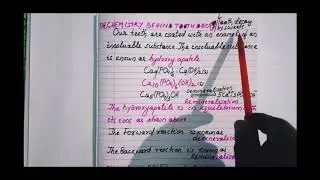 THE CHEMISTRY BEHIND TOOTH DECAY
Tooth decay
by sweets
Our teeth are coated with an enamel of an
insoluble substance. The insoluble substance
is known as hydroxy apatite
Ca₁₀(PO₄)₆(OH)₂(s)
Ca₅(PO₄)₃OH Demineralisation
Remineralisation
The hydroxyapatite is in equilibrium with
its ions as shown above
The Forward reaction is known as
demineralisation
The Backward reaction is known as
Remineralisation